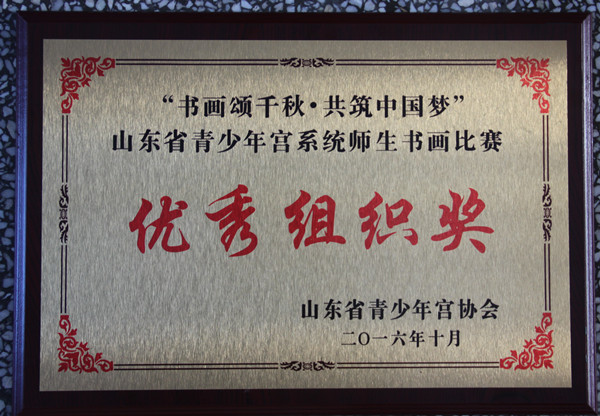 “书画颂千秋·共筑中国梦”
山东省青少年宫系统师生书画比赛
优秀组织奖
山东省青少年宫协会
二〇一六年十月